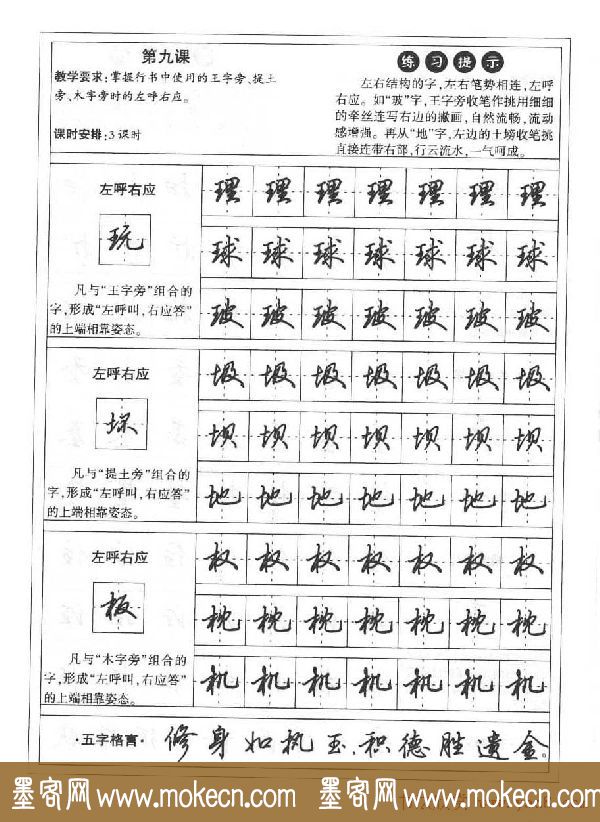 第九课
教学要求：掌握行书中使用的王字旁、提土
旁、木字旁时的左呼右应。
课时安排：3课时
练习提示
左右结构的字，左右笔势相连，左呼
右应。如“玻”字，王字旁收笔作挑用细细
的牵丝连写右边的撇画，自然流畅，流动
感增强。再从“地”字，左边的土塝收笔挑
直接连带右部，行云流水，一气呵成。
左呼右应
玩
凡与“王字旁”组合的
字，形成“左呼叫，右应答”
的上端相靠姿态。
理理理理理理理
球球球球球球球
玻玻玻玻玻玻玻
左呼右应
凡与“提土旁”组合的
字，形成“左呼叫，右应答”
的上端相靠姿态。
圾圾圾圾圾圾圾
坝坝坝坝坝坝坝
地地地地地地地
左呼右应
板
凡与“木字旁”组合的
字，形成“左呼叫，右应答”
的上端相靠姿态。
权权权权权权权
枕枕枕枕枕枕枕
机机机机机机机
·五字格言· 修身如执玉，积德胜遗金。
墨客网 www.mokecn.com 墨客网 www.mokecn.com